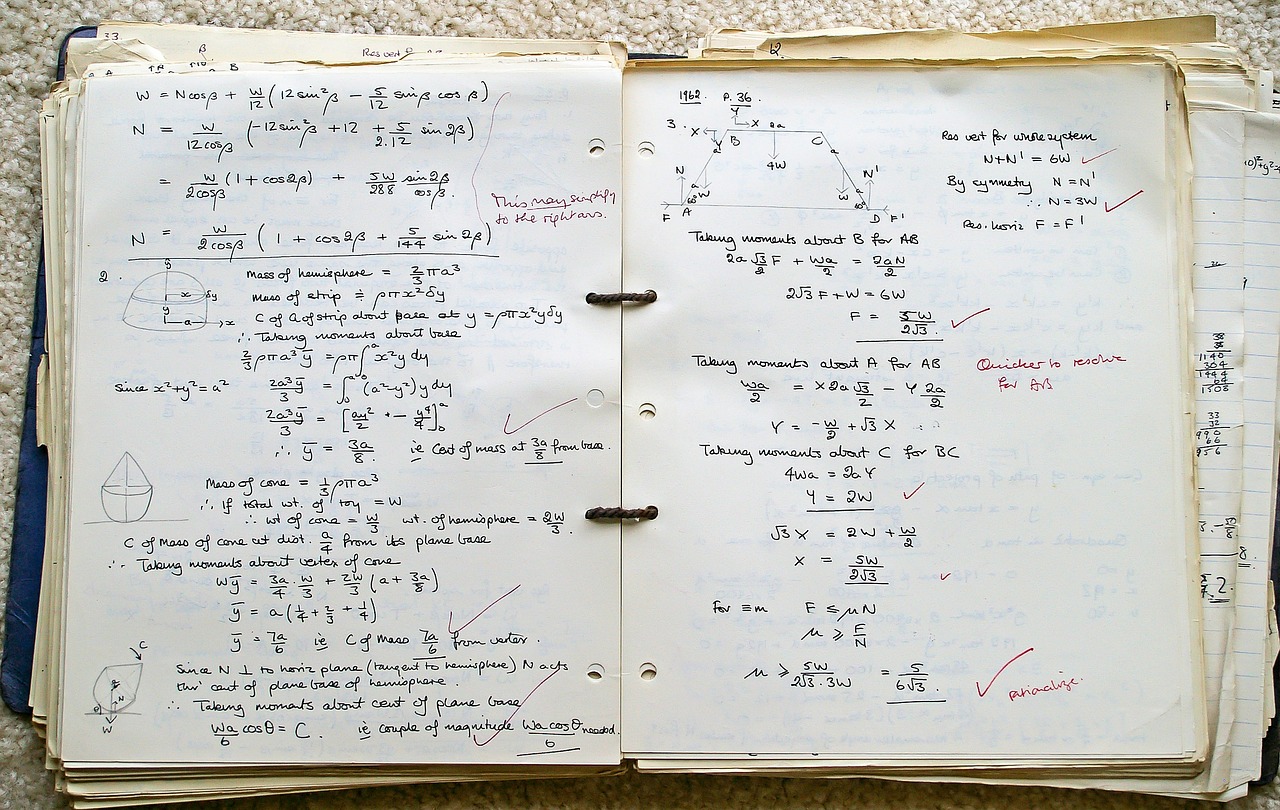 33.
β
Res vert
B
W = N cosβ + W/12 (12 sin²β − 5/12 sinβ cosβ)
N = W/12cosβ (−12 sin²β + 12 + 5/2.12 sin 2β)
= W/2cosβ (1 + cos2β) + 5W/288 sin2β/cosβ.
This may simplify
to the right ans.
N = W/2cosβ (1 + cos2β + 5/144 sin 2β)
2.
y
x δy
y
a x
Mass of hemisphere = 2/3 πa³
Mass of strip ≑ ρπx²δy
C of G of strip about base at y = ρπx²yδy
∴ Taking moments about base
2/3 ρπa³ȳ = ρπ∫₀ᵃ x²y dy
Since x²+y²=a² 2a³ȳ/3 = ∫₀ᵃ (a²−y²) y dy
2a³ȳ/3 = [ay²/2 − y⁴/4]₀ᵃ
∴ ȳ = 3a/8 ie Cent of mass at 3a/8 from base.
Mass of cone = 1/3 ρπa³
∴ If total wt. of toy = W
∴ wt of cone = W/3 wt. of hemisphere = 2W/3.
C of Mass of cone at dist. a/4 from its plane base
∴ Taking moments about vertex of cone
Wȳ = 3a/4 · W/3 + 2W/3 (a + 3a/8)
ȳ = a(1/4 + 2/3 + 1/4)
ȳ = 7a/6 ie C of Mass 7a/6 from vertex.
C
N
θ
W
Since N ⊥ to horiz plane (tangent to hemisphere) N acts
thro' cent of plane base of hemisphere.
∴ Taking moments about cent of plane base
Wa/6 cosθ = C. ie couple of magnitude Wa cosθ/6 needed.
1962. P. 36.
3.
Y
X X 2a
Y B C
a a
4W
N a a N'
W W
60° 60°
F A D F'
Res vert for whole system
N+N' = 6W
By symmetry N = N'
∴ N = 3W
Res. horiz F = F'
Taking moments about B for AB
2a √3/2 F + Wa/2 = 2aN/2
2√3 F + W = 6W
F = 5W/2√3.
Taking moments about A for AB
Quicker to resolve
for AB
Wa/2 = X 2a √3/2 − Y 2a/2
Y = −W/2 + √3 X
Taking moments about C for BC
4Wa = 2aY
Y = 2W
√3 X = 2W + W/2
X = 5W/2√3
For ≡m F ≤ μN
μ ≥ F/N
μ ≥ 5W/2√3·3W = 5/6√3.
rationalize.
38
38
1140
304
1444
64
1508
33
32
990
66
956